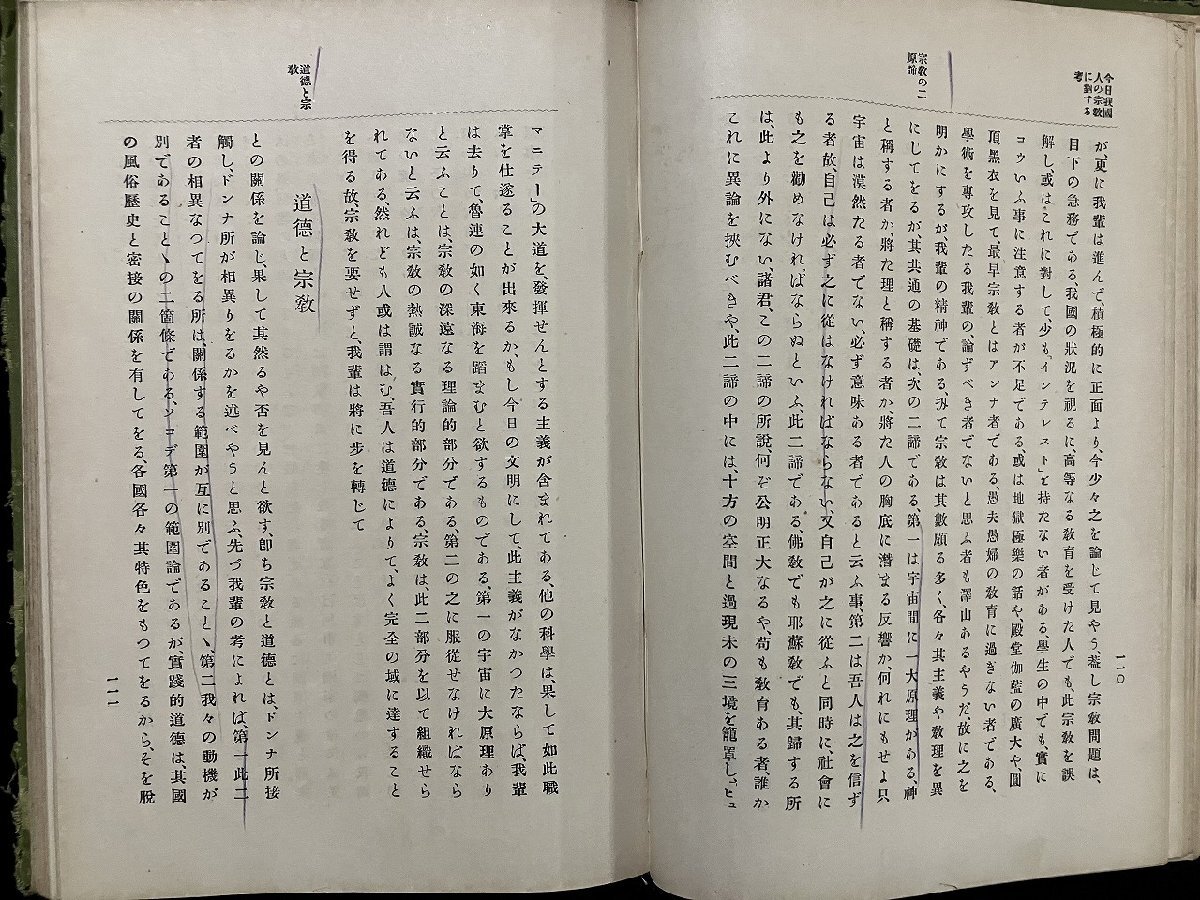 今日我國
人の宗教
に對する
考
宗教の二
原諦
一一〇
が、更に我輩は進んで、積極的に正面より、今少々之を論じて見やう、蓋し宗教問題は、
目下の急務である、我國の狀況を視るに、高等なる敎育を受けた人でも、此宗敎を誤
解し、或はこれに對して、少も「インテレスト」を持たない者がある、學生の中でも、實に
コウいふ事に注意する者が不足である、或は地獄極樂の話や、殿堂伽藍の廣大や、圓
頂黑衣を見て、最早宗敎とはアンナ者である、愚夫愚婦の敎育に過ぎない者である、
學術を專攻したる我輩の論ずべき者でないと思ふ者も澤山あるやうだ、故に之を
明かにするが我輩の精神である、扨て宗敎は其數頗る多く、各々其主義や敎理を異
にしてをるが、其共通の基礎は、次の二諦である、第一は宇宙間に一大原理がある、神
と稱する者か、將た理と稱する者か將た人の胸底に潛まる反響か、何れにもせよ只
宇宙は漠然たる者でない、必ず意味ある者であると云ふ事、第二は吾人は之を信ず
る者故、自己は必ず之に從はなければならない、又自己が之に從ふと同時に、社會に
も之を勸めなければならぬといふ、此二諦である、佛敎でも耶蘇敎でも、其歸する所
は此より外にない、諸君、この二諦の所說、何ぞ公明正大なるや、苟も敎育ある者、誰か
これに異論を挾むべきや、此二諦の中には、十方の空間と過現未の三境を籠罩し、「ヒュ
道德と宗
敎
一一一
マニテー」の大道を、發揮せんとする主義が含まれてある、他の科學は、果して如此職
掌を仕遂ることが出來るか、もし今日の文明にして此主義がなかつたならば、我輩
は去りて、魯連の如く東海を蹈まむと欲するものである、第一の宇宙に大原理あり
と云ふことは、宗敎の深遠なる理論的部分である、第二の之に服從せなければなら
ないと云ふは、宗敎の熱誠なる實行的部分である、宗敎は、此二部分を以て組織せら
れてある、然れども人或は謂はむ、吾人は道德によりて、よく完全の域に達すること
を得る故、宗敎を要せずと、我輩は將に步を轉じて
道德と宗敎
との關係を論じ、果して其然るや否を見んと欲す、卽ち宗敎と道德とは、ドンナ所接
觸し、ドンナ所が相異りをるかを述べやうと思ふ、先づ我輩の考によれば、第一此二
者の相異なつてをる所は、關係する範圍が互に別であること、第二我々の動機が
別であることゝの二箇條である、ソコデ第一の範圍論であるが、實踐的道德は、其國
の風俗歷史と密接の關係を有してをる、各國各々其特色をもつてをるから、そを脫